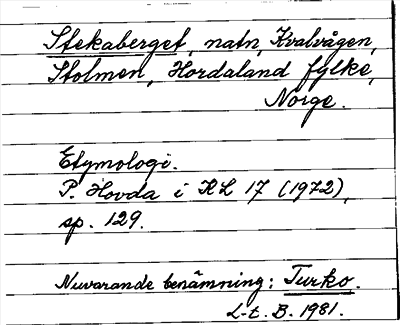 Stekaberget, natn, Kvalvågen,
Stolmen, Hordaland fylke,
Norge.
Etymologi.
P. Hovda i KL 17 (1972),
sp. 129.
Nuvarande benämning: Turko.
L-t. B. 1981.